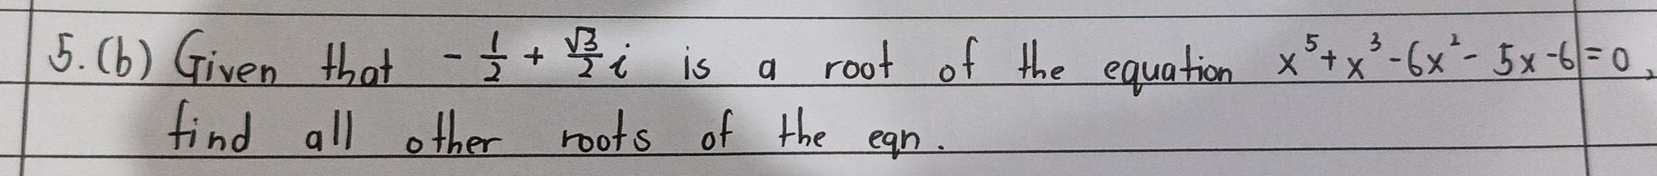 5. (b) Given that - 1/2 + √3/2 i is a root of the equation x⁵ + x³ - 6x² - 5x - 6 = 0,
find all other roots of the eqn.